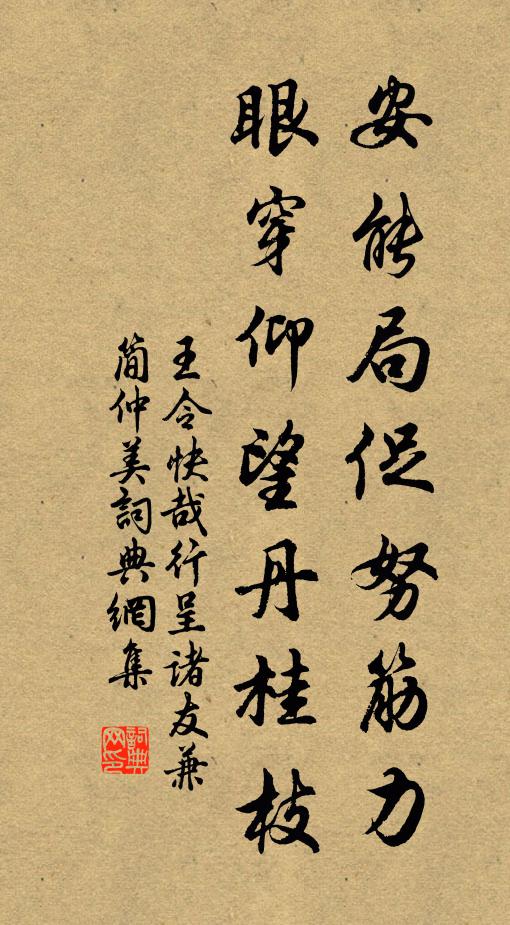 安能局促努筋力
眼穿仰望丹桂枝
王令快哉行呈諸友兼
简仲美詞典網集
詞典網印